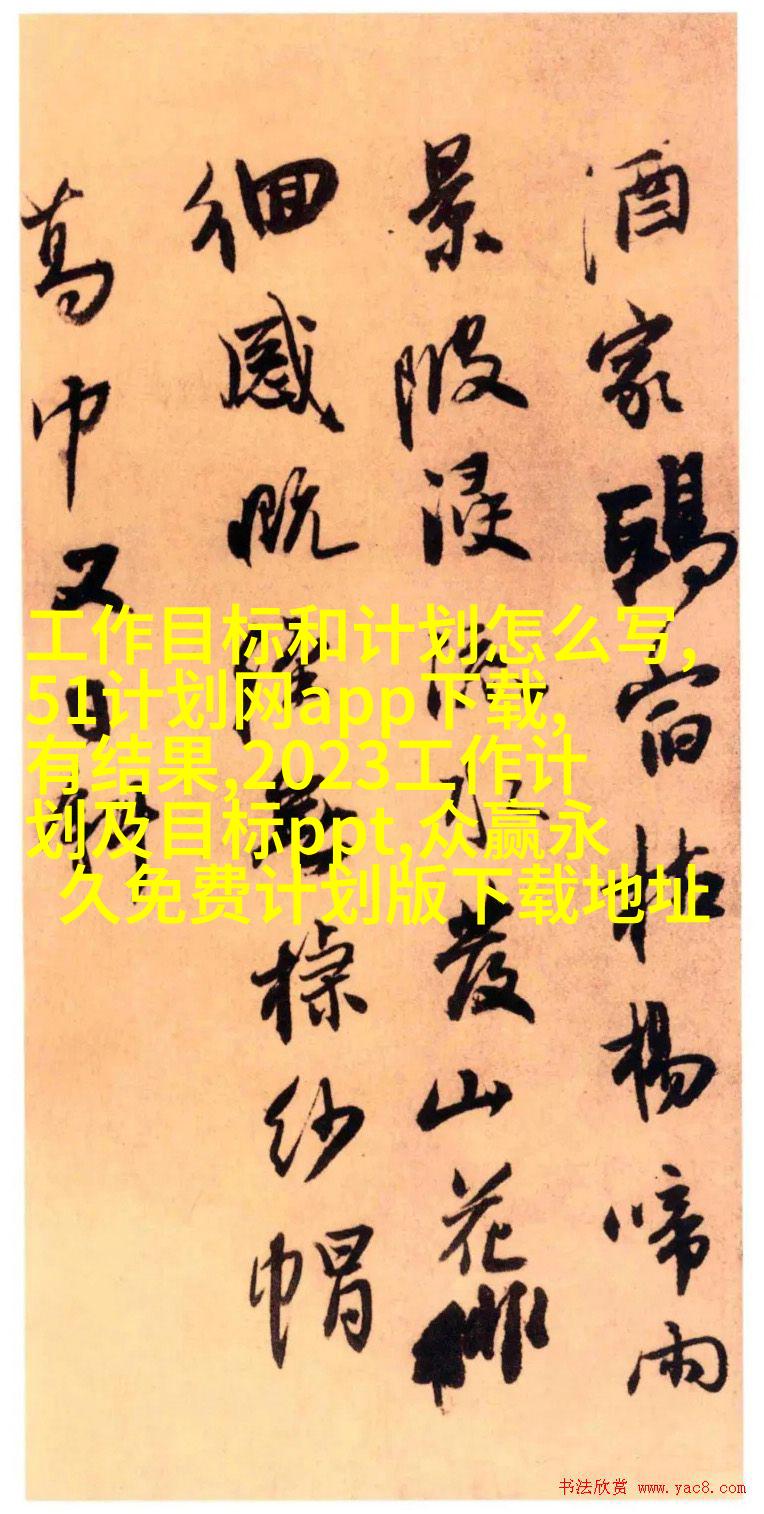 酒家宿枯楊啼雨
景陂浸水發山花
徊感紗帽
葛巾又日
工作目标和计划怎么写,
51计划网app下载,
有结果,2023工作计
划及目标ppt,众赢永
久免费计划版下载地址
书法欣赏 www.yac8.com